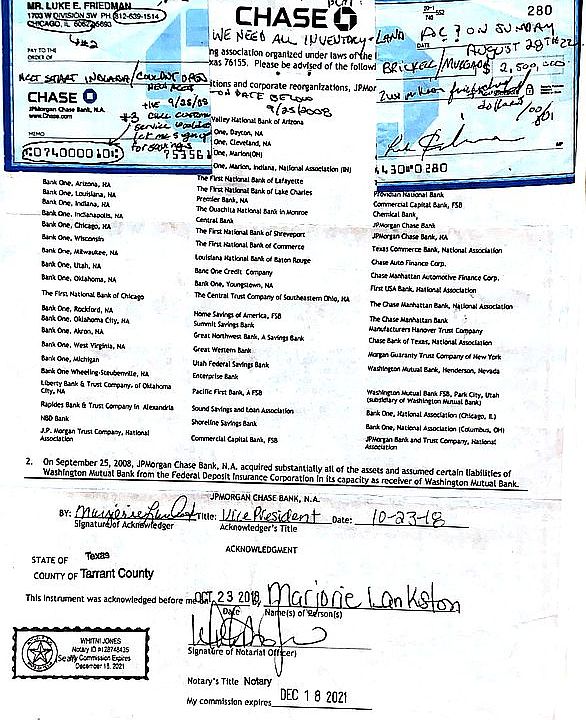 MR. LUKE E. FRIEDMAN
1703 W DIVISION SW PH (312-639-1514
CHICAGO, IL
PAY TO THE
ORDER OF
CHASE
JPMorgan Chase Bank, N.A.
www.Chase.com
MEMO
074000010
CHASE
WE NEED ALL INVENTORY + LAND
ng association organized under laws of the
xas 76155. Please be advised of the follow
tions and corporate reorganizations, JPMor
ON DATE BELOW
9/25/2008
280
ON SUNDAY
DATE
AUGUST 28TH 22
$ 2,500,000
dollars
430 0280
Valley National Bank of Arizona
One, Dayton, NA
One, Cleveland, NA
One, Marion(OH)
One, Marion, Indiana, National Association (IN)
Bank One, Arizona, NA
Bank One, Louisiana, NA
Bank One, Indiana, NA
Bank One, Indianapolis, NA
Bank One, Chicago, NA
Bank One, Wisconsin
Bank One, Milwaukee, NA
Bank One, Utah, NA
Bank One, Oklahoma, NA
The First National Bank of Chicago
Bank One, Rockford, NA
Bank One, Oklahoma City, NA
Bank One, Akron, NA
Bank One, West Virginia, NA
Bank One, Michigan
Bank One Wheeling-Steubenville, NA
Liberty Bank & Trust Company, of Oklahoma
City, NA
Rapides Bank & Trust Company in Alexandria
NBD Bank
J.P. Morgan Trust Company, National
Association
The First National Bank of Lafayette
The First National Bank of Lake Charles
Premier Bank, NA
The Ouachita National Bank in Monroe
Central Bank
The First National Bank of Shreveport
The First National Bank of Commerce
Louisiana National Bank of Baton Rouge
Banc One Credit Company
Bank One, Youngstown, NA
The Central Trust Company of Southeastern Ohio, NA
Home Savings of America, FSB
Summit Savings Bank
Great Northwest Bank, A Savings Bank
Great Western Bank
Utah Federal Savings Bank
Enterprise Bank
Pacific First Bank, A FSB
Sound Savings and Loan Association
Shoreline Savings Bank
Commercial Capital Bank, FSB
Providian National Bank
Commercial Capital Bank, FSB
Chemical Bank,
JPMorgan Chase Bank
JPMorgan Chase Bank, NA
Texas Commerce Bank, National Association
Chase Auto Finance Corp.
Chase Manhattan Automotive Finance Corp.
First USA Bank, National Association
The Chase Manhattan Bank, National Association
The Chase Manhattan Bank
Manufacturers Hanover Trust Company
Chase Bank of Texas, National Association
Morgan Guaranty Trust Company of New York
Washington Mutual Bank, Henderson, Nevada
Washington Mutual Bank FSB, Park City, Utah
(subsidiary of Washington Mutual Bank)
Bank One, National Association (Chicago, IL)
Bank One, National Association (Columbus, OH)
JPMorgan Bank and Trust Company, National
Association
2. On September 25, 2008, JPMorgan Chase Bank, N.A. acquired substantially all of the assets and assumed certain liabilities of
Washington Mutual Bank from the Federal Deposit Insurance Corporation in its capacity as receiver of Washington Mutual Bank.
JPMORGAN CHASE BANK, N.A.
BY: Title: Vice President Date: 10-23-18
Signature of Acknowledger Acknowledger's Title
ACKNOWLEDGMENT
STATE OF Texas
COUNTY OF Tarrant County
This instrument was acknowledged before me on OCT 23 2018, Marjorie Lankston
Date Name(s) of Person(s)
Signature of Notarial Officer)
WHITNI JONES
Notary ID #128748435
My Commission Expires
December 18, 2021
Seal
Notary's Title Notary
My commission expires DEC 18 2021